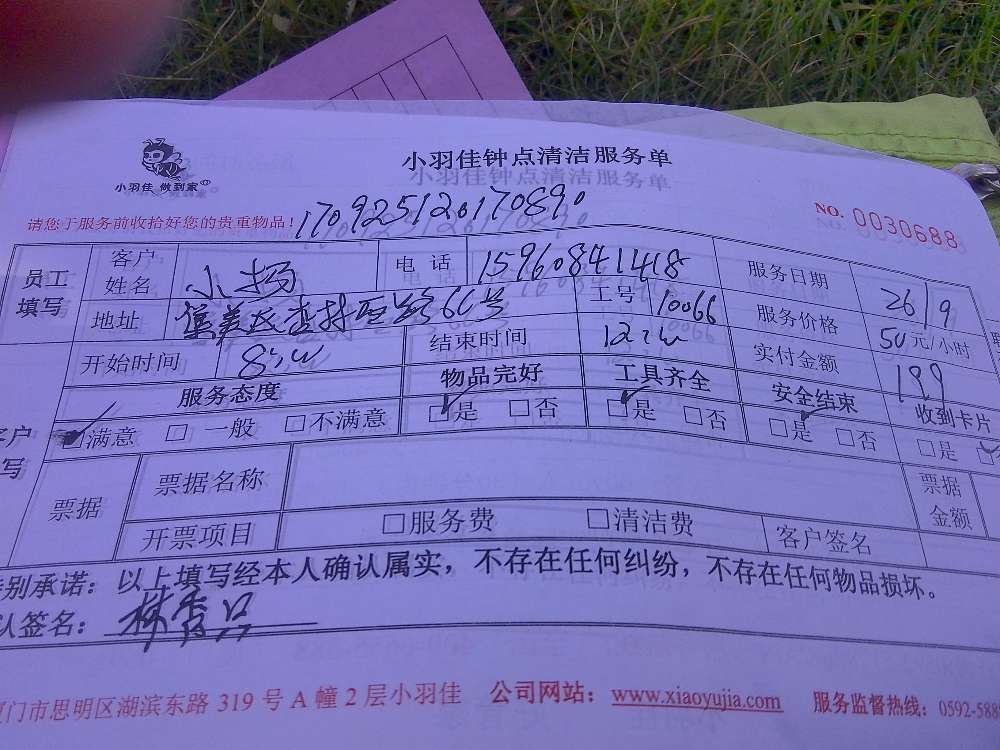 小羽佳 做到家
小羽佳钟点清洁服务单
请您于服务前收拾好您的贵重物品！
170925120170890
NO. 0030688
员工填写 客户姓名 小杨 电话 15960841418 服务日期 26/9
地址 66号 工号 10066 服务价格 50元/小时
开始时间 8:00 结束时间 12:00 实付金额 199
服务态度 物品完好 工具齐全 安全结束 收到卡片
满意 □一般 □不满意 □是 □否 □是 □否 □是 □否 □是
票据 票据名称 票据金额
开票项目 □服务费 □清洁费 客户签名
别承诺：以上填写经本人确认属实，不存在任何纠纷，不存在任何物品损坏。
认签名：
门市思明区湖滨东路 319 号 A 幢 2 层小羽佳 公司网站：www.xiaoyujia.com 服务监督热线：0592-588